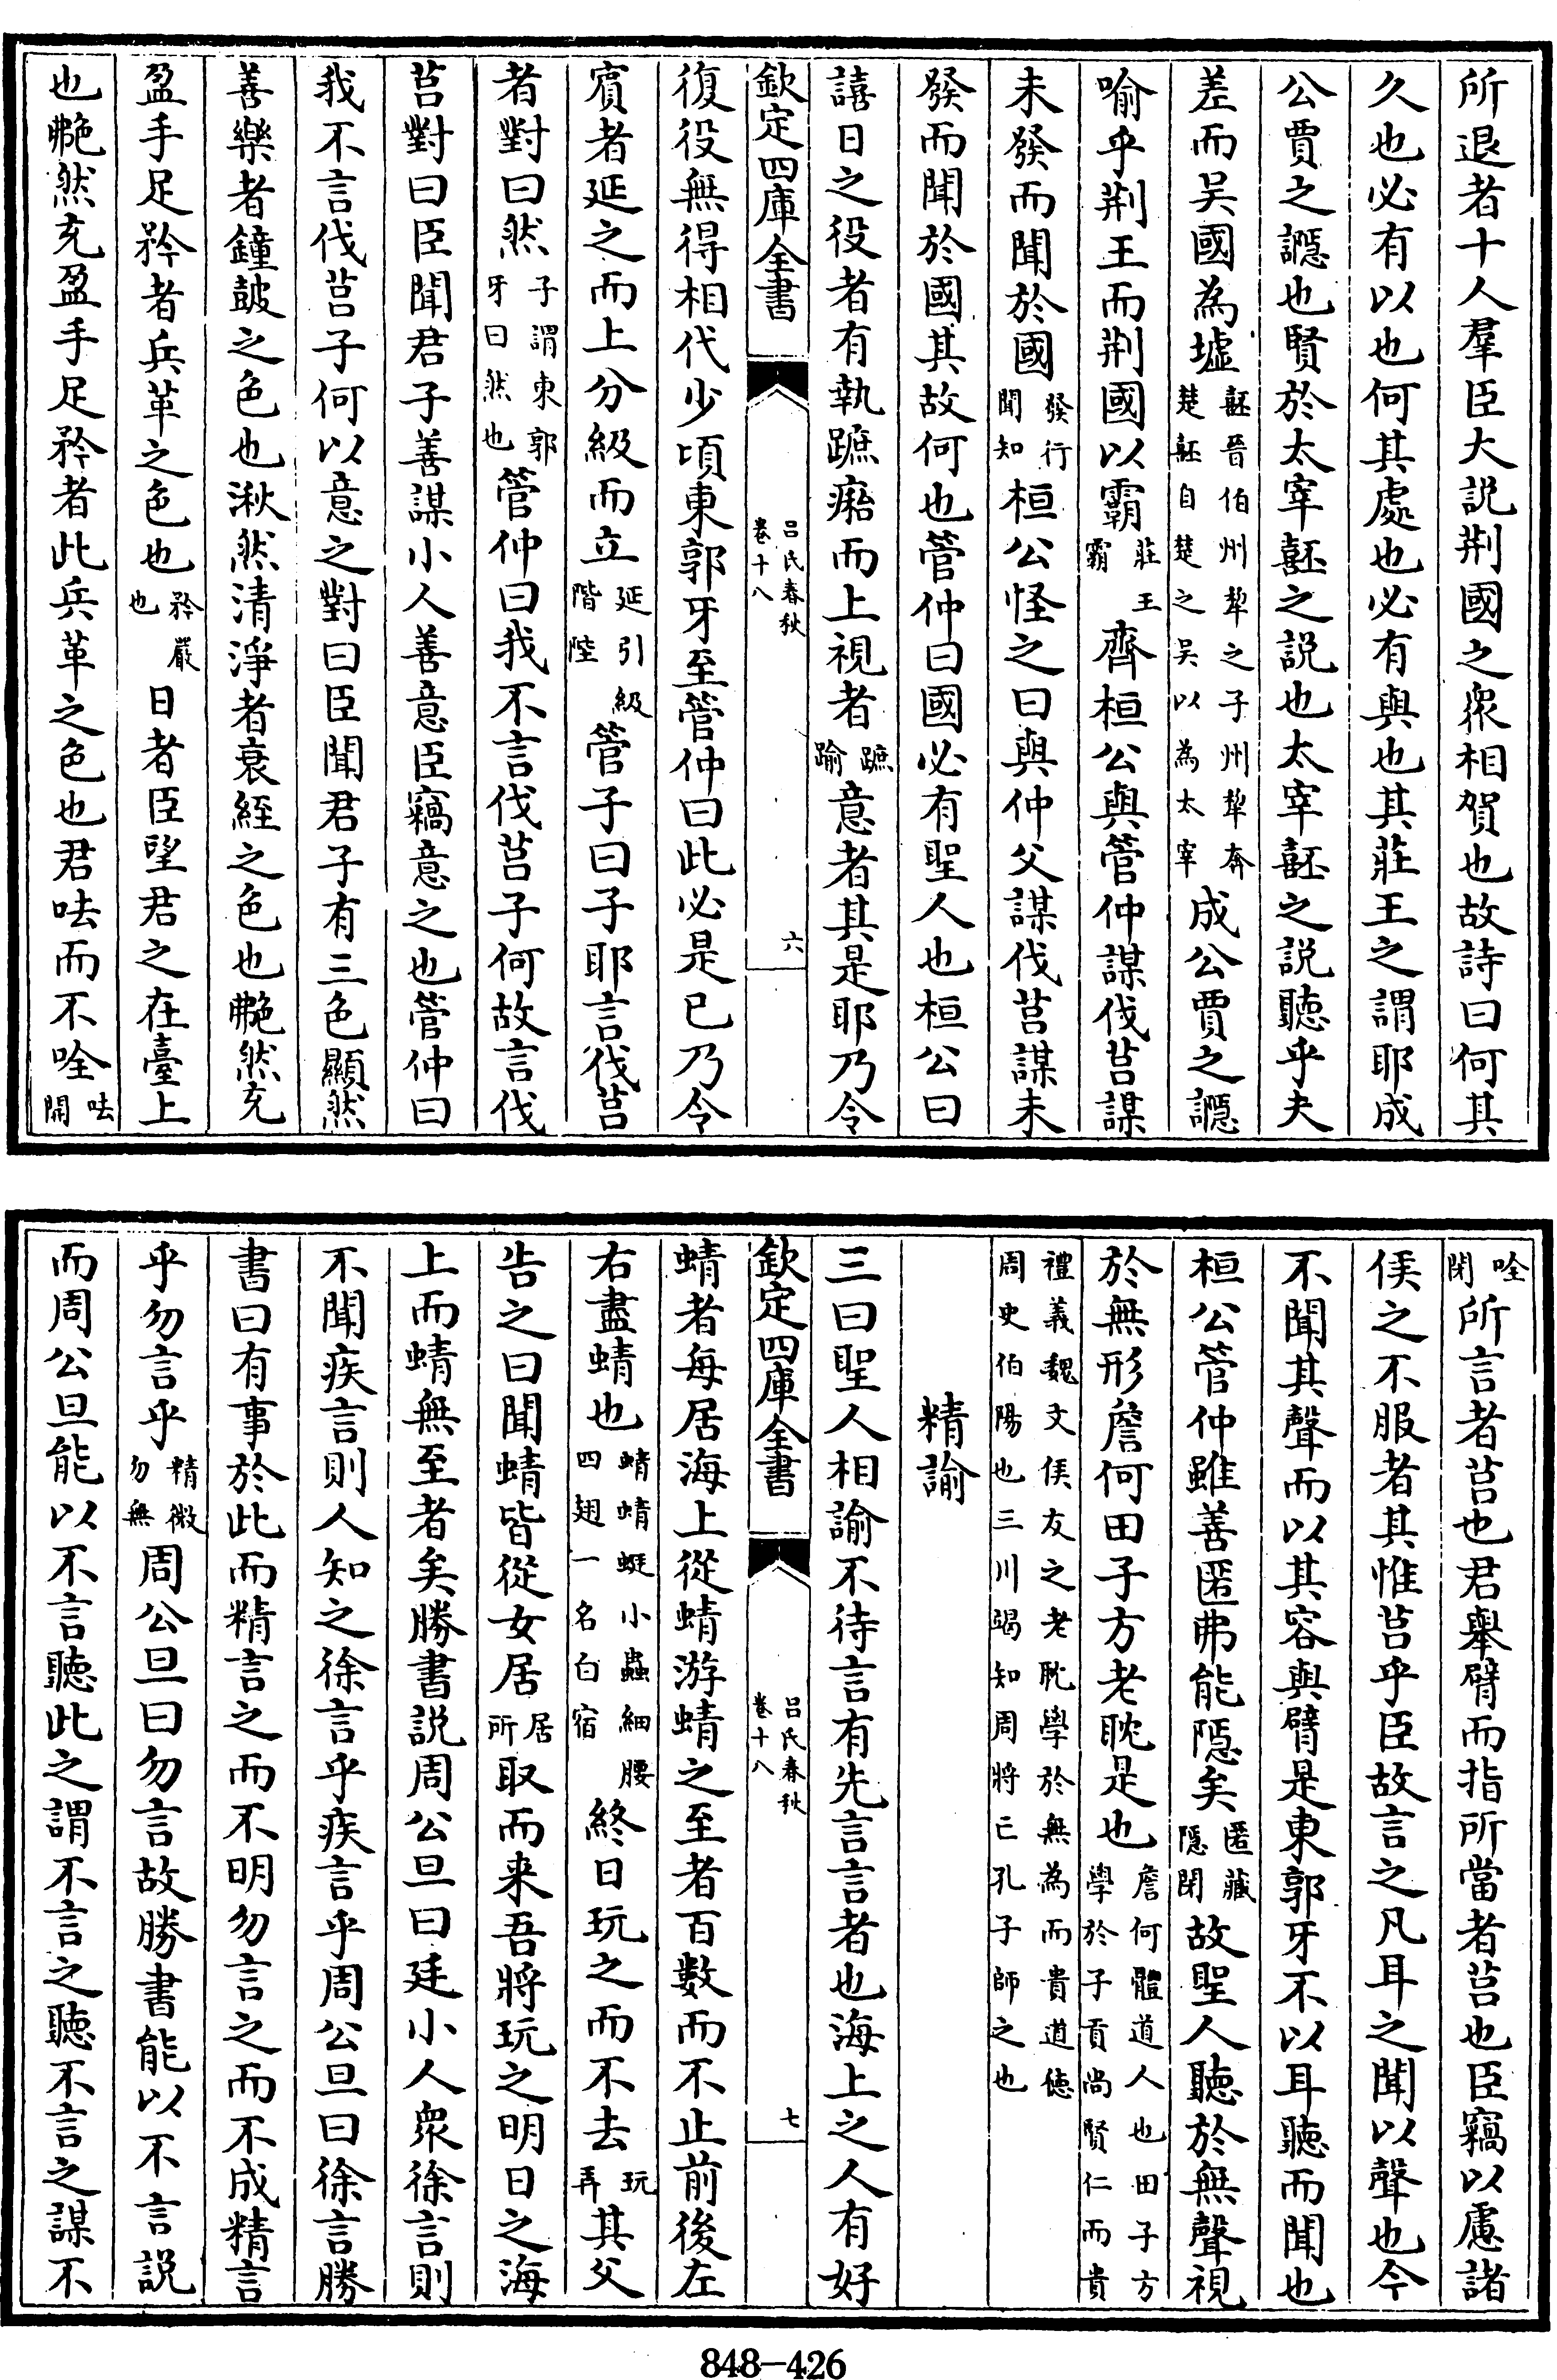 所退者十人羣臣大説荆國之衆相賀也故詩曰何其
久也必有以也何其處也必有與也其莊王之謂耶成
公賈之讔也賢於太宰嚭之説也太宰嚭之説聽乎夫
差而吴國為墟嚭晉伯州犂之子州犂奔楚嚭自楚之吴以為太宰成公賈之讔
喻乎荆王而荆國以霸莊王霸齊桓公與管仲謀伐莒謀
未發而聞於國發行聞知桓公怪之曰與仲父謀伐莒謀未
發而聞於國其故何也管仲曰國必有聖人也桓公曰
譆日之役者有執蹠㿇而上視者蹠踰意者其是耶乃令
欽定四庫全書 吕氏春秋 卷十八 六
復役無得相代少頃東郭牙至管仲曰此必是已乃令
賓者延之而上分級而立延引級階陛管子曰子耶言伐莒
者對曰然子謂東郭牙曰然也管仲曰我不言伐莒子何故言伐
莒對曰臣聞君子善謀小人善意臣竊意之也管仲曰
我不言伐莒子何以意之對曰臣聞君子有三色顯然
善樂者鐘皷之色也湫然清淨者衰絰之色也艴然充
盈手足矜者兵革之色也矜嚴也日者臣望君之在臺上
也艴然充盈手足矜者此兵革之色也君呿而不唫呿開
唫閉所言者莒也君舉臂而指所當者莒也臣竊以慮諸
侯之不服者其惟莒乎臣故言之凡耳之聞以聲也今
不聞其聲而以其容與臂是東郭牙不以耳聽而聞也
桓公管仲雖善匿弗能隠矣匿藏隠閉故聖人聽於無聲視
於無形詹何田子方老耽是也詹何體道人也田子方學於子貢尚賢仁而貴
禮義魏文侯友之老耽學於無為而貴道徳周史伯陽也三川竭知周將亡孔子師之也
精諭
三曰聖人相諭不待言有先言言者也海上之人有好
欽定四庫全書 吕氏春秋 卷十八 七
蜻者每居海上從蜻游蜻之至者百數而不止前後左
右盡蜻也蜻蜻蜓小蟲細腰四翅一名白宿終日玩之而不去玩弄其父
告之曰聞蜻皆從女居居所取而来吾將玩之明日之海
上而蜻無至者矣勝書説周公旦曰廷小人衆徐言則
不聞疾言則人知之徐言乎疾言乎周公旦曰徐言勝
書曰有事於此而精言之而不明勿言之而不成精言
乎勿言乎精微勿無周公旦曰勿言故勝書能以不言説
而周公旦能以不言聽此之謂不言之聽不言之謀不
848-426